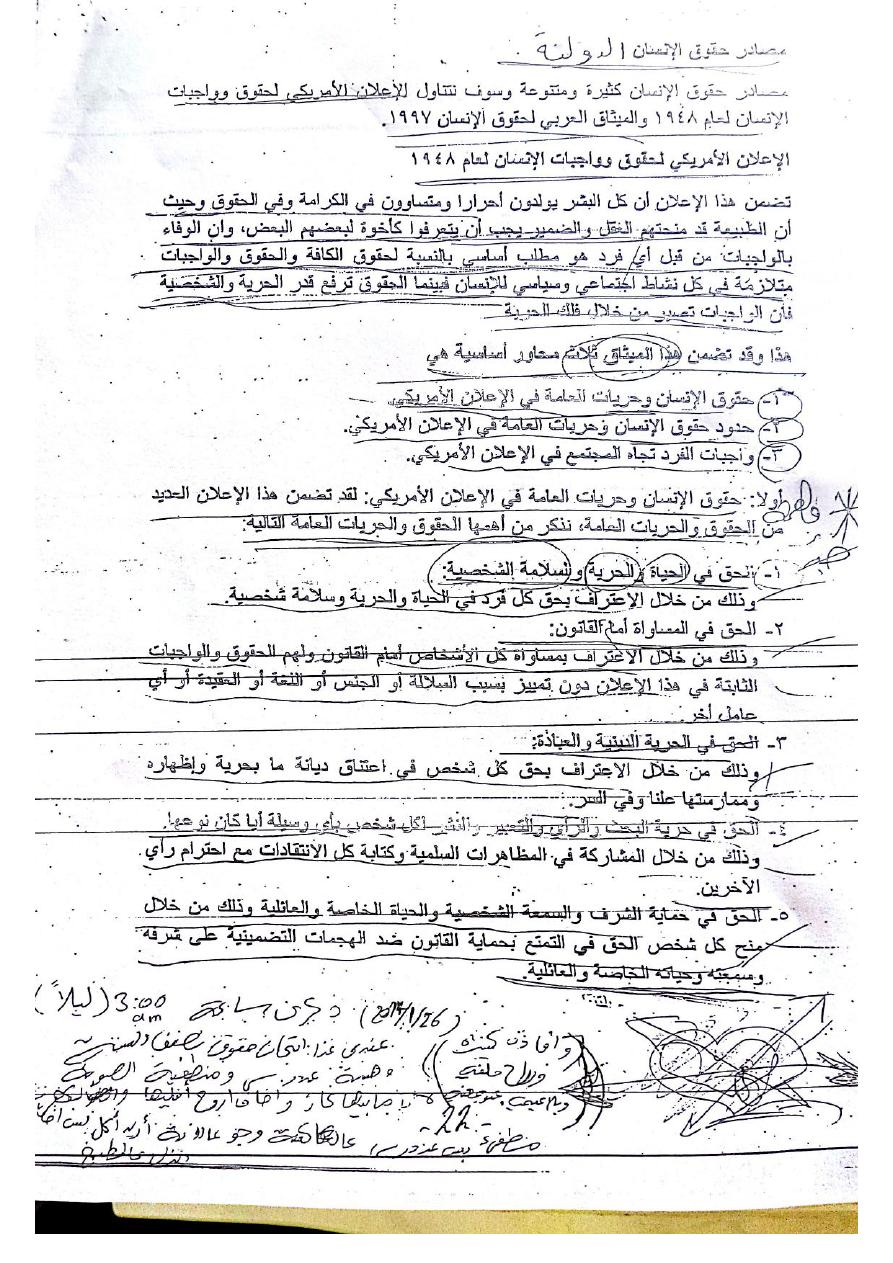 مصادر حقوق الإنسان الدولية
مصادر حقوق الإنسان كثيرة ومتنوعة وسوف نتناول الإعلان الأمريكي لحقوق وواجبات
الإنسان لعام ١٩٤٨ والميثاق العربي لحقوق الإنسان ١٩٩٧.
الإعلان الأمريكي لحقوق وواجبات الإنسان لعام ١٩٤٨
تضمن هذا الإعلان أن كل البشر يولدون أحرارا ومتساوون في الكرامة وفي الحقوق وحيث
أن الطبيعة قد منحتهم العقل والضمير يجب أن يتعرفوا كأخوة لبعضهم البعض، وان الوفاء
بالواجبات من قبل أي فرد هو مطلب أساسي بالنسبة لحقوق الكافة والحقوق والواجبات
متلازمة في كل نشاط اجتماعي وسياسي للإنسان فبينما الحقوق ترفع قدر الحرية والشخصية
فأن الواجبات تعبير من خلال تلك الحرية
هذا وقد تضمن هذا الميثاق ثلاثة محاور أساسية هي
١- حقوق الإنسان وحريات العامة في الإعلان الأمريكي.
٢- حدود حقوق الإنسان وحريات العامة في الإعلان الأمريكي.
٣- واجبات الفرد تجاه المجتمع في الإعلان الأمريكي.
أولا: حقوق الإنسان وحريات العامة في الإعلان الأمريكي: لقد تضمن هذا الإعلان العديد
من الحقوق والحريات العامة، نذكر من أهمها الحقوق والحريات العامة التالية:
١- الحق في الحياة والحرية وسلامة الشخصية:
وذلك من خلال الإعتراف بحق كل فرد في الحياة والحرية وسلامة شخصية.
٢- الحق في المساواة أمام القانون:
وذلك من خلال الاعتراف بمساواة كل الأشخاص أمام القانون ولهم الحقوق والواجبات
الثابتة في هذا الإعلان دون تمييز بسبب السلالة أو الجنس أو اللغة أو العقيدة أو أي
عامل أخر.
٣- الحق في الحرية الدينية والعبادة:
وذلك من خلال الاعتراف بحق كل شخص في اعتناق ديانة ما بحرية وإظهاره
وممارستها علنا وفي السر.
٤- الحق في حرية البحث والرأي والتعبير والنشر لكل شخص بأي وسيلة أيا كان نوعها.
وذلك من خلال المشاركة في المظاهرات السلمية وكتابة كل الأنتقادات مع احترام رأي
الآخرين.
٥- الحق في حماية الشرف والسمعة الشخصية والحياة الخاصة والعائلية وذلك من خلال
منح كل شخص الحق في التمتع بحماية القانون ضد الهجمات التضمينية على شرفه
وسمعته وحياته الخاصة والعائلية
(ليلاً) 3:00 am
عندي غدا امتحان حقوق
-22-